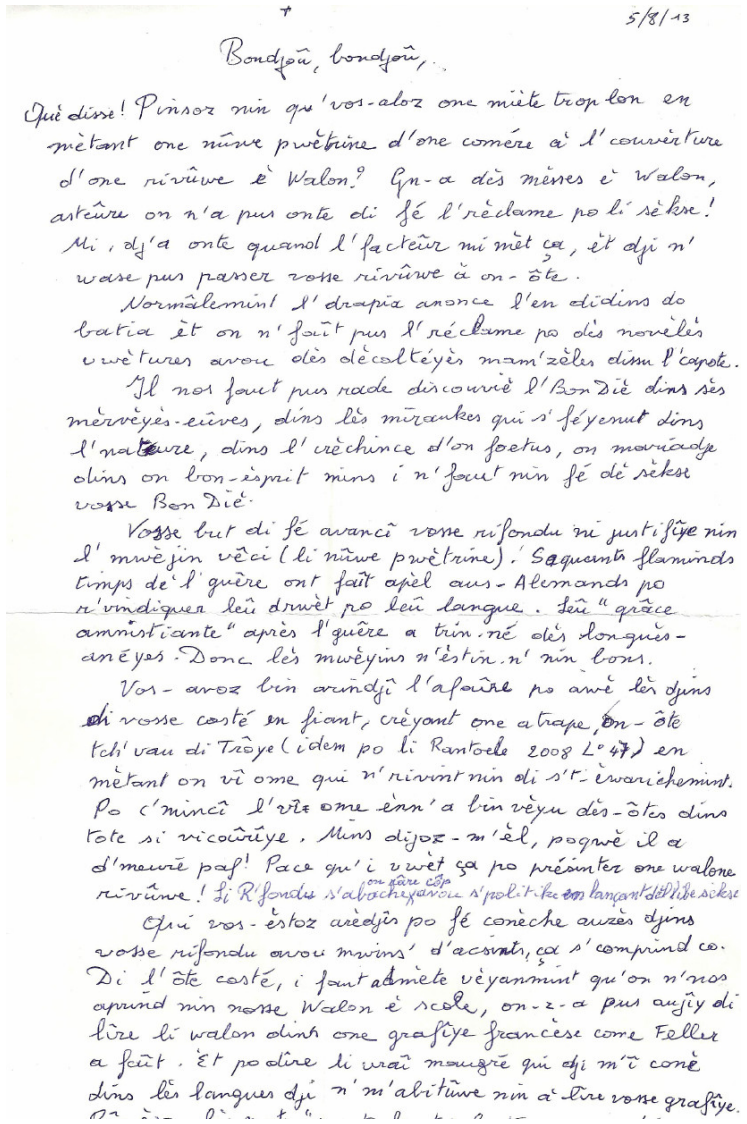 5/8/13
Bondjoû, bondjoû,
Què disse! Pinsoz nin qu'vos-aloz one miète trop lon en
mètant one nûwe pwètrine d'one comére à l'couvèrture
d'one rivûwe è Walon? Gn-a dès mèsses è Walon,
asteûre on n'a pus onte di fé l'rèclame po li sèkse!
Mi, dj'a onte quand l'facteûr mi mèt ça, èt dji n'
wase pus passer vosse rivûwe à on-ôte.
Normâlemint l'drapia anonce l'en didins do
batia èt on n'faît pus l'réclame po dès novèlès
vwètures avou dès dècoltéyès mam'zèles dissu l'capote.
Il nos faut pus rade discouviè l'Bon Diè dins sès
mèrvèyès-eûves, dins lès miraukes qui s'féyenut dins
l'nateure, dins l'crèchince d'on foetus, on mariadje
dins on bon-èsprit mins i n'faut nin fé dè sèkse
vosse Bon Diè.
Vosse but di fé avancî vosse rifondu ni justifîye nin
l'mwèjin vêci (li nûwe pwètrine)! Saquants flaminds
timps dè l'guère ont faît apèl aus-Alemands po
r'vindiquer leû drwèt po leû langue. Leû "grâce
amnistiante" après l'guêre a trin-né dès longuès-
anéyes. Donc lès mwèyins n'èstin-n' nin bons.
Vos-avoz bin arindjî l'afaîre po awè lès djins
di vosse costé en fiant, crèyant one atrape, on-ôte
tch'vau di Trôye (idem po li Rantoele 2008 L° 47) en
mètant on vî ome qui n'rivint nin di s't-èwarichemint.
Po c'mincî l'vîx ome ènn'a bin vèyu dès-ôtes dins
tote si vicoûrîye. Mins dijoz-m'èl, poqwè il a
d'meuré paf! Pace qu'i vwèt ça po présinter one walone
rivûwe! Li R'fondu s'abache on râre côp avou s'politike en lançant dèl libe sèkse
Qui vos-èstoz arèdjîs po fé conèche auzès djins
vosse rifondu avou mwins' d'acsints, ça s'comprind co.
Di l'ôte costé, i faut admète vèyanmint qu'on n'nos
aprind nin nosse Walon è scole, on-z-a pus aujîy di
lîre li walon dins one grafîye francèse come Feller
a faît. Èt po dîre li vraî maugré qui dji m'î conè
dins lès langues dji n'm'abitûwe nin à lîre vosse grafîye.